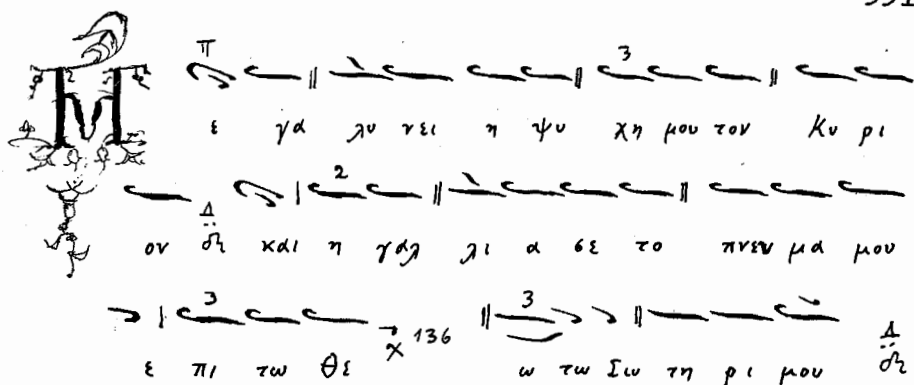 Μ ε γα λυ νει η ψυ χη μου τον Κυ ρι
ον και η γαλ λι α σε το πνευ μα μου
ε πι τω θε χ 136 ω τω Σω τη ρι μου